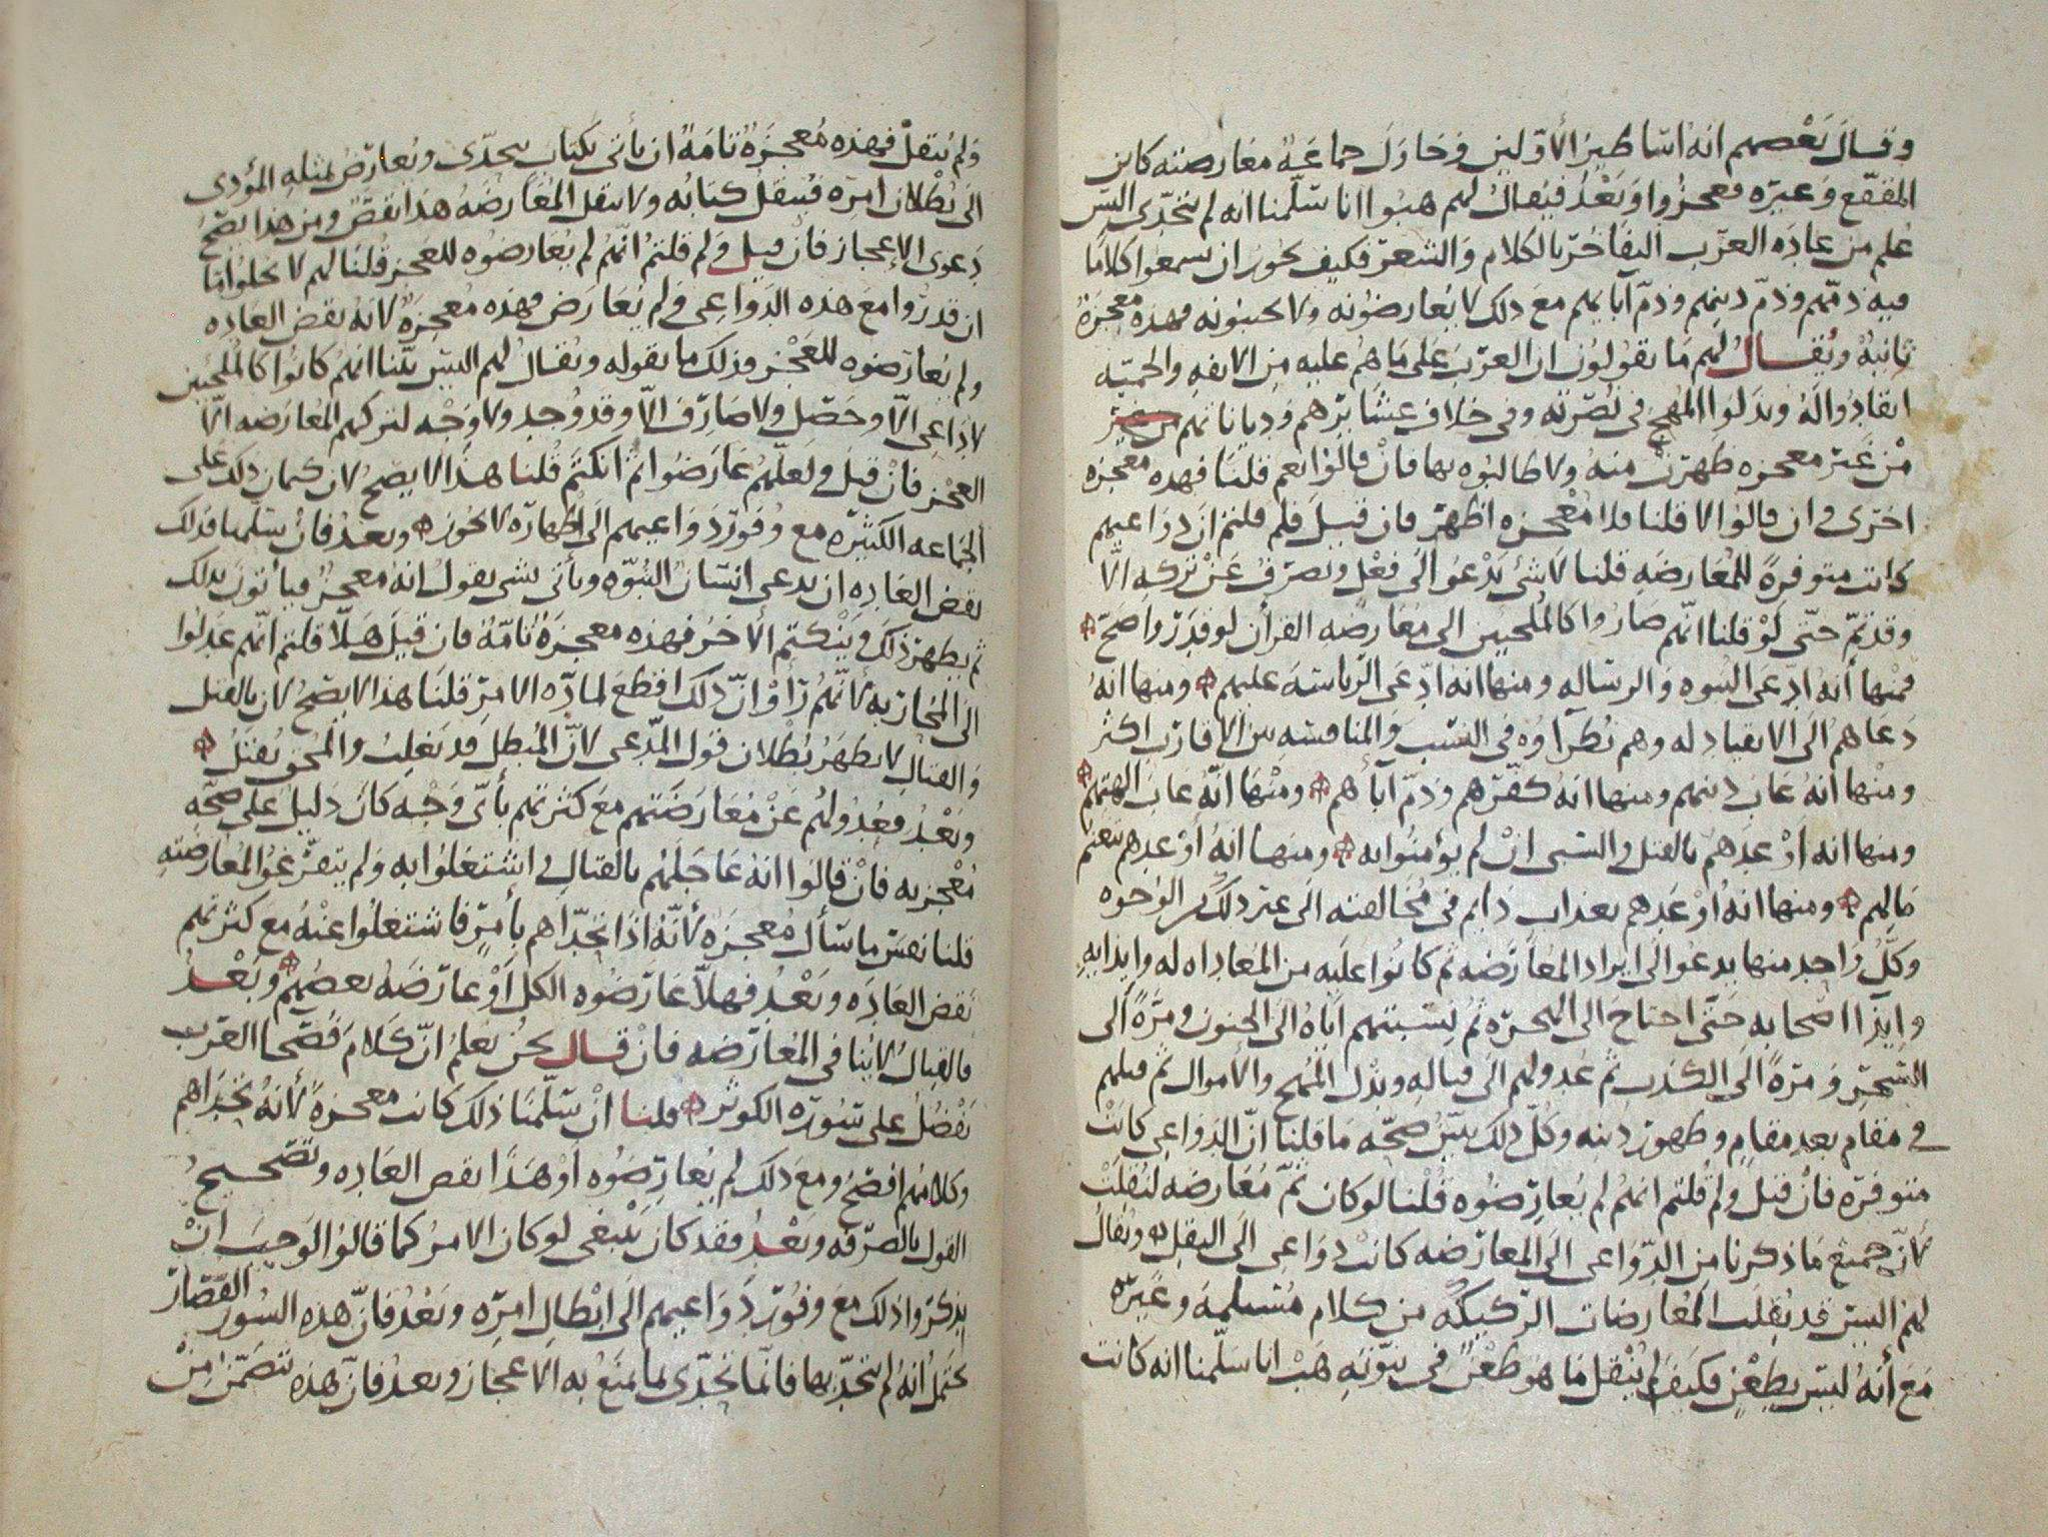 وقال بعضهم انه اساطير الأولين وحاول جماعة معارضته كابن
المقفع وغيره فعجزوا وبعد فيقال لهم هبوا انا سلمنا انه لم يتحدى اليس
عُلم من عاده العرب التفاخر بالكلام والشعر فكيف يجوز ان يسمعوا كلاما
فيه ذمهم وذم دينهم وذم آبايهم مع ذلك لا يعارضونه ولا يجيبونه فهذه معجزة
ثانية ويقال لهم ما يقولون ان العرب على ما هم عليه من الانفه والحميه
انقادوا له وبذلوا المهج في نصرته وفي خلاف عشايرهم ودياناتهم من غير
من غير معجزه ظهرت منه ولا طالبوه بها فان قالوا نعم قلنا فهده معجزه
اخرى وان قالوا لا قلنا فلا معجزه اظهر فان قيل فلم قلتم ان دواعيهم
كانت متوفرة للمعارضه قلنا لا شئ يدعوا الى فعل ويصرف عن تركه الا
وقد تم حتى لو قلنا انهم صاروا كالملجين الى معارضه القرأن لو قدروا صح
فمنها أنه ادعى النبوه والرساله ومنها انه ادعى الرياسة عليهم ومنها انه
دعاهم الى الانقياد له وهم نظراوه في النسب والمنافسه بين الاقارب اكثر
ومنها أنه عاب دينهم ومنها انه كفرهم وذم آبأهم ومنها انه عاب الهتهم
ومنها انه أوعدهم بالقتل والسبي ان لم يؤمنوا به ومنها انه أوعدهم بغنم
مالهم ومنها انه أوعدهم بعذاب دايم في مخالفته الى غير ذلك من الوجوه
وكل واحد منها يدعوا الى ايراد المعارضه ثم كانوا عليه من المعاداه له وايذايه
وايذا اصحابه حتى احتاج الى الهجره ثم نسبتهم اياه الى الجنون ومرة الى
السحر ومرة الى الكذب ثم عدولهم الى قتاله وبذل المهج والاموال ثم قتلهم
في مقام بعد مقام وظهور دينه وكل ذلك يبين صحه ما قلنا ان الدواعي كانت
متوفره فان قيل ولم قلتم انهم لم يعارضوه قلنا لو كان ثم معارضه لنقلت
لأن جميع ما ذكرنا من الدواعي الى المعارضه كانت دواعي الى النقل ويقال
لهم اليس قد نقلت المعارضات الركيكه من كلام مسلمه وغيره
مع أنه ليس بطعن فكيف لم ينقل ما هو طعن في نبوته هب انا سلمنا انه كانت
ولم ينقل فهذه معجزة تامة ان يأتي بكتاب يتحدى ويعارض بمثله المؤدى
الى بطلان امره فينقل كتابه ولا ينقل المعارضه هذا نقض ومن هذا يصح
دعوى الإعجاز فان قيل ولم قلتم انهم لم يعارضوه للعجز قلنا لهم لا يخلوا اما
ان قدروا مع هذه الدواعي ولم يعارض فهذه معجزة لانه نقض العاده
ولم يعارضوه للعجز وذلك ما نقوله ويقال لهم اليس بينا انهم كانوا كالملجين
لا داعي الا وحصل ولا صارف الا وقد وجد ولا وجه لتركهم المعارضه الا
العجز فان قيل ولعلهم عارضوا ثم انكتم قلنا هذا لا يصح لان كتمان ذلك على
الجماعه الكثيره مع وفور دواعيهم الى اظهاره لا يجوز وبعد فان سلمنا فذلك
نقض العاده ان يدعي انسان النبوه ويأتي بشي يقول انه معجز فيأتون بذلك
ثم يظهر ذلك وينكتم الأخر فهذه معجزة تامة فان قيل هلا قلتم انهم عدلوا
الى المحاربه لأنهم رأوا ان ذلك اقطع لمادة الامر قلنا هذا لا يصح لان بالقتل
والقتال لا يظهر بطلان قول المدعي لأن المبطل قد يغلب والمحق يقتل
وبعد فعدولهم عن معارضتهم مع كثرتهم بأي وجه كان دليل على صحه
معجزته فان قالوا انه عاجلهم بالقتال واشتغلوا به ولم يتفرغوا لمعارضته
قلنا نفس ما سأل معجزة لأنه اذا تحداهم بأمر فاشتغلوا عنه مع كثرتهم
نقض العاده وبعد فهلا عارضوه الكل أو عارضه بعضهم وبعد
فالقتال لا ينافي المعارضه فان قال نحن نعلم ان كلام فصحا العرب
تفضل على سورة الكوثر قلنا ان سلمنا ذلك كانت معجزة لأنه تحداهم
وكلامهم افصح ومع ذلك لم يعارضوه او هذا نقض العاده وتصحيح
القول بالصرفه وبعد فقد كان ينبغي لو كان الامر كما قالوا لوجب ان
يذكروا ذلك مع وفور دواعيهم الى ابطال امره وبعد فان هذه السور القصار
يحتمل انه لم يتحد بها فانما تحدى لما يمنع به الاعجاز وبعد فان هذه تتضمن من